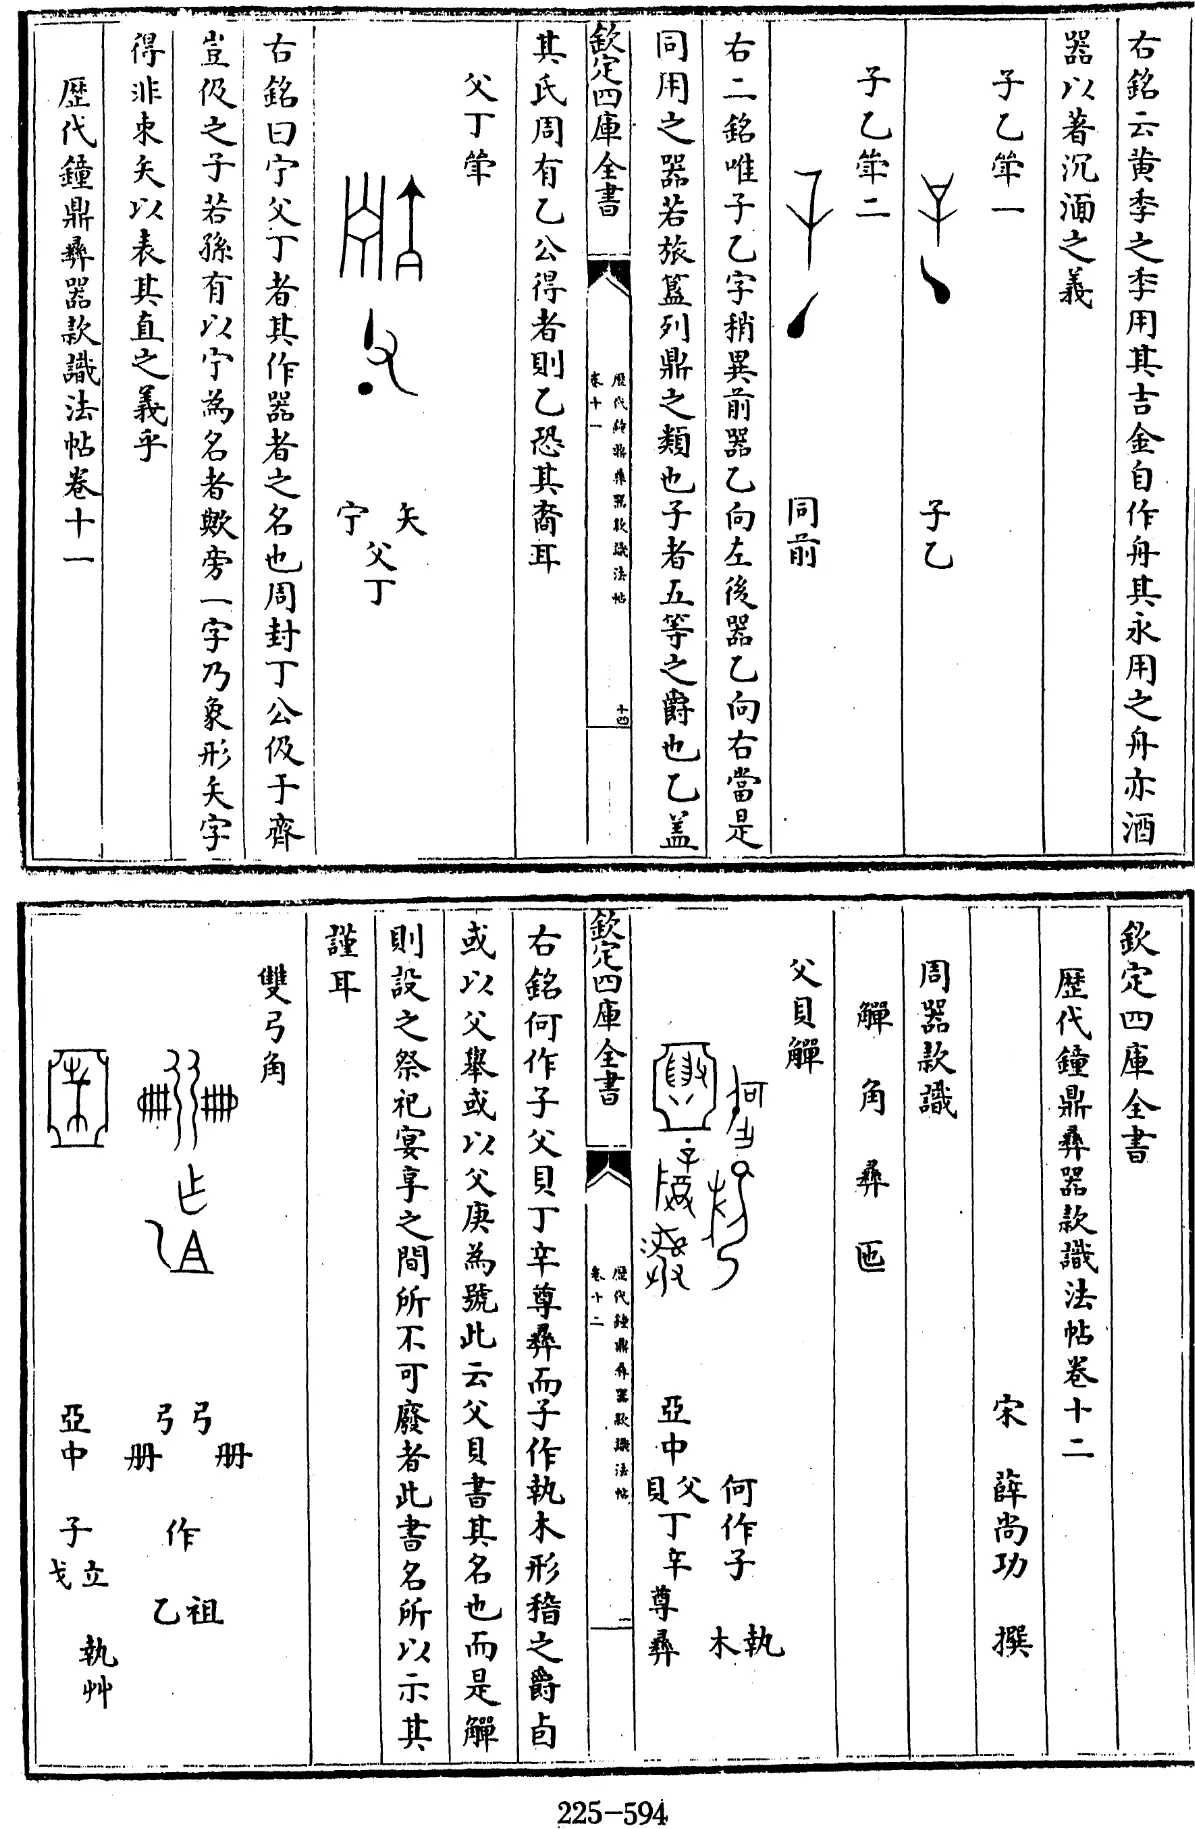 右銘云黄季之季用其吉金自作舟其永用之舟亦酒
器以著沉湎之義
子乙斝一
子乙
子乙斝二
同前
右二銘唯子乙字稍異前器乙向左後器乙向右當是
同用之器若旅簋列鼎之類也子者五等之爵也乙盖
欽定四庫全書
歴代鐘鼎彝器款識法帖
卷十一
十四
其氏周有乙公得者則乙恐其裔耳
父丁斝
矢
宁
父丁
右銘曰宁父丁者其作器者之名也周封丁公伋于齊
豈伋之子若孫有以宁為名者歟旁一字乃象形矢字
得非束矢以表其直之義乎
歴代鐘鼎彝器款識法帖卷十一
欽定四庫全書
歴代鐘鼎彝器款識法帖卷十二
宋 薛尚功 撰
周器款識
觶 角 彝 匜
父貝觶
何作子
執木
亞中
父貝丁辛
尊彝
欽定四庫全書
歴代鐘鼎彝器款識法帖
卷十二
一
右銘何作子父貝丁辛尊彝而子作執木形稽之爵卣
或以父舉或以父庚為號此云父貝書其名也而是觶
則設之祭祀宴享之間所不可廢者此書名所以示其
謹耳
雙弓角
弓弓
册册
作
祖乙
亞中
子
立戈
執艸
225-594